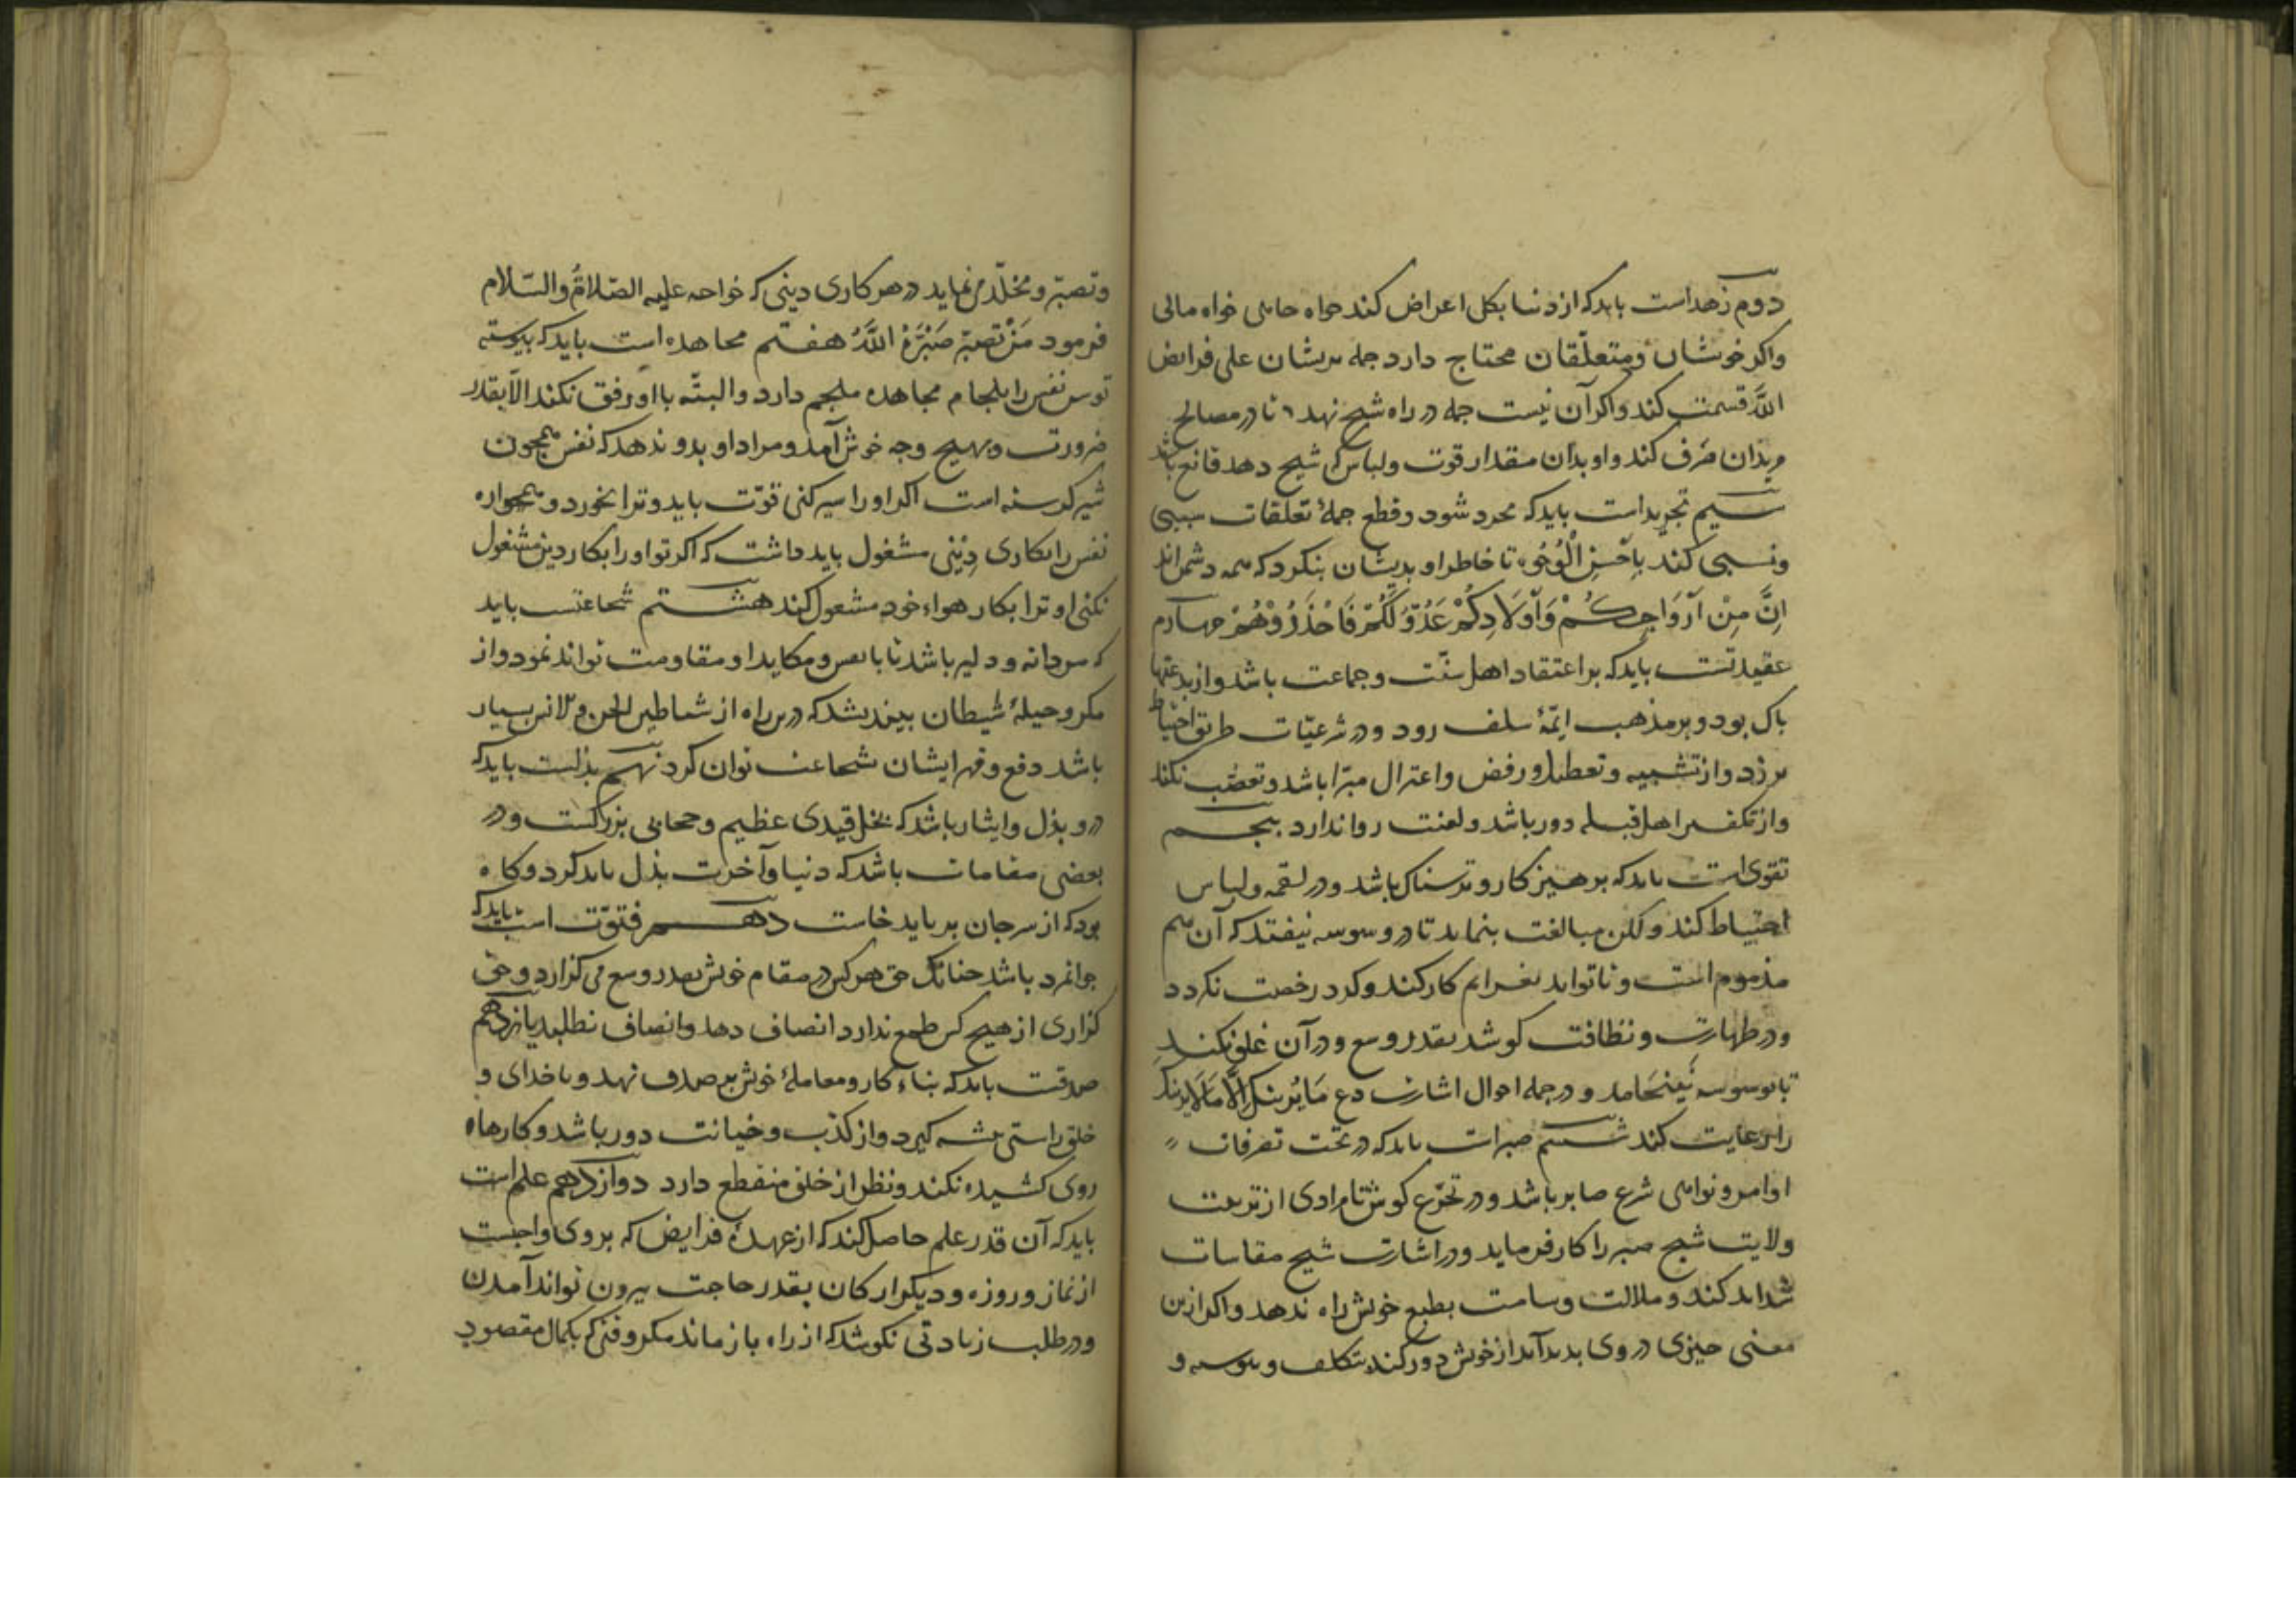 دوم زهداست بایدکه ازدنیا بکلی اعراض کند خواه جاهی خواه مالی
واکر خویشان ومتعلّقان محتاج دارد جمله بریشان علی فرایض
اللهّ قسمت کند واکر آن نیست جمله در راه شیخ نهد تا در مصالح
مریدان صرف کند واو بدان مقدار قوت ولباس کی شیخ دهد قانع باشد
سیم تجریداست بایدکه مجرد شود وقطع جملهٔ تعلقات سببی
ونسبی کند بِاَحْسَنِ الْوُجُوه تا خاطر او بدیشان بنکرد که همه دشمن اند
اِنَّ مِنْ اَزْوَاجِكُمْ وَاَوْلَادِكُمْ عَدُوّاً لَكُمْ فَاحْذَرُوْهُمْ چهارم
عقیدتست بایدکه بر اعتقاد اهل سنّت وجماعت باشد واز بدعتها
پاک بود وبرمذهب ایمّهٔ سلف رود ودر شرعیّات طریق احتیاط
ورزد واز تشبیه وتعطیل ورفض واعتزال مبرّا باشد وتعصّب نکند
واز تکفیر اهل قبله دور باشد ولعنت روا ندارد پنجم
تقوی است بایدکه پرهیزکار وترسناک باشد ودر لقمه ولباس
احتیاط کند ولکن مبالغت ننماید تا در وسوسه نیفتد که آن هم
مذموم است وتا تواند بعزایم کار کند وکرد رخصت نکردد
ودر طهارت ونظافت کوشد بقدر وسع ودر آن غلو نکند
تا بوسوسه نینجامد ودر جمله احوال اشارت دع مَا یُرِیبُكَ اِلَی مَا لَا یریبك
را رعایت کند ششم صبراست بایدکه در تحت تصرفات
اوامر ونواهی شرع صابر باشد ودر تجرّع کوش نامرادی از تربیت
ولایت شیخ صبر را کار فرماید ودر اشارت شیخ مقاسات
شداید کند وملالت وسامت بطبع خویش راه ندهد واکر ازین
معنی چیزی در وی بدید آید از خویش دور کند بتکلف و
وتصبّر وتجلّد می نماید در هر کاری دینی که خواجه علیه الصّلاةُ والسّلام
فرمود مَنْ تصبّر صَبَّرَهُ اللَّهُ هفتم مجاهده است بایدکه پیوسته
توسن نفس را بلجام مجاهده ملجم دارد والبتّه با او رفق نکند الّا بقدر
ضرورت وبهیچ وجه خوش آمد ومراد او بدو ندهد که نفس همچون
شیر کرسنه است اکر او را سیر کنی قوّت یابد وترا بخورد وهمواره
نفس را بکاری دِیْنی مشغول باید داشت که اکر تو او را بکار دین مشغول
نکنی او ترا بکار هواء خود مشغول کند هشتم شجاعتست باید
که مردانه ودلیر باشد تا با نفس ومکاید او مقاومت تواند نمود واز
مکر وحیلهٔ شیطان نیندیشد که درین راه از شیاطین الجن والانس بسیار
باشد دفع وقهر ایشان بشجاعت توان کرد نهم بذلست بایدکه
درو بذل وایثار باشد که بخل قیدی عظیم وحجابی بزرکست ودر
بعضی مقامات باشد که دنیا وآخرت بذل باید کرد وکاه
بود که از سر جان بر باید خاست دهم فتوّت است بایدکه
جوانمرد باشد چنانک حق هر کس در مقام خویش بقدر وسع می کزارد وحق
کزاری از هیچ کس طمع ندارد انصاف دهد وانصاف نطلبد یازدهم
صدقست بایدکه بناء کار ومعاملهٔ خویش بر صدق نهد وبا خدای و
خلق راستی پیشه کیرد واز کذب وخیانت دور باشد وکارها
روی کشیده نکند ونظر از خلق منقطع دارد دوازدهم علم است
بایدکه آن قدر علم حاصل کند که از عهدهٔ فرایض که بر وی واجبست
از نماز وروزه ودیکر ارکان بقدر حاجت بیرون تواند آمدن
ودر طلب زیادتی نکوشد که از راه باز ماند مکر وقتی که بکمال مقصود